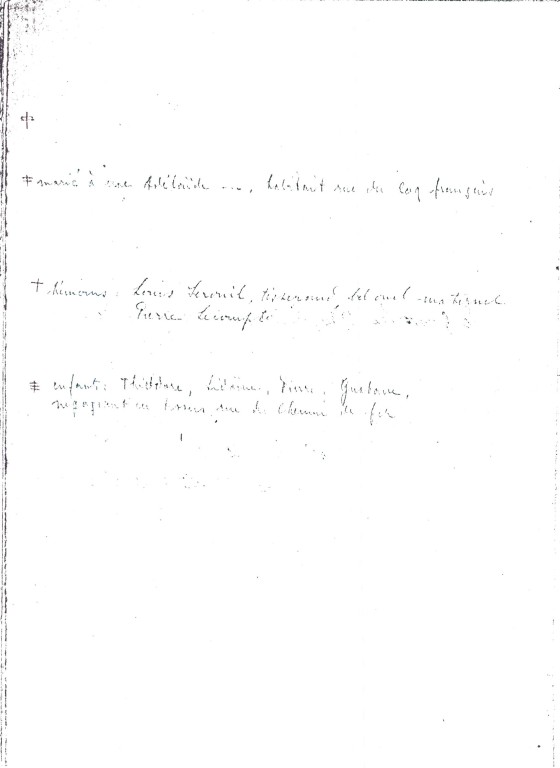 ≠ marié à une Adélaïde ..., habitant rue du Coq français
† témoins: Louis tisserand, bel oncl maternel
Pierre Lecompte
≠ enfants: Théodore, Pierre, Gustave,
négociant en tissus, rue du Chemin de fer